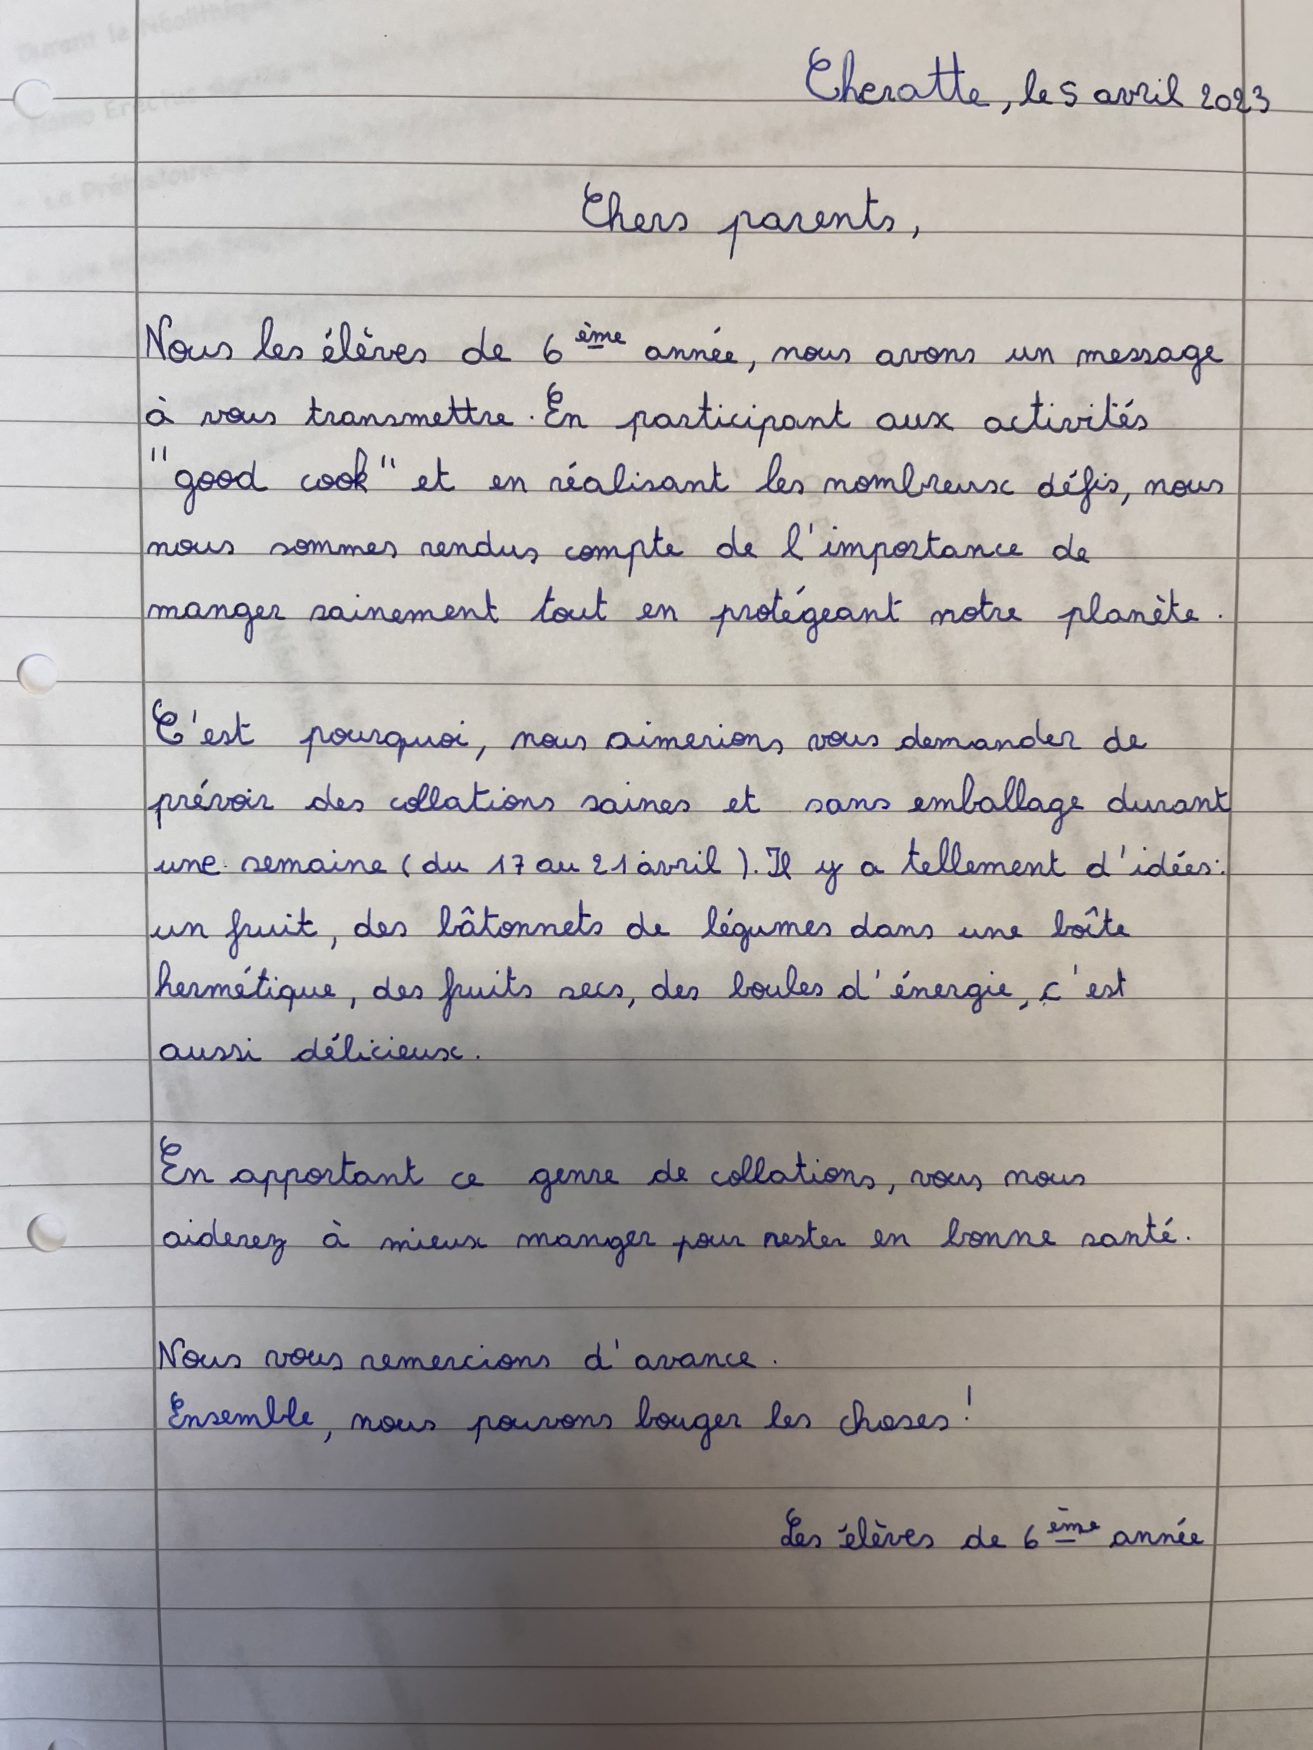 Cheratte, le 5 avril 2023
Chers parents,
Nous les élèves de 6ème année, nous avons un message
à vous transmettre. En participant aux activités
"good cook" et en réalisant les nombreux défis, nous
nous sommes rendus compte de l'importance de
manger sainement tout en protégeant notre planète.
C'est pourquoi, nous aimerions vous demander de
prévoir des collations saines et sans emballage durant
une semaine (du 17 au 21 avril). Il y a tellement d'idées:
un fruit, des bâtonnets de légumes dans une boîte
hermétique, des fruits secs, des boules d'énergie, c'est
aussi délicieux.
En apportant ce genre de collations, vous nous
aiderez à mieux manger pour rester en bonne santé.
Nous vous remercions d'avance.
Ensemble, nous pouvons bouger les choses!
Les élèves de 6ème année